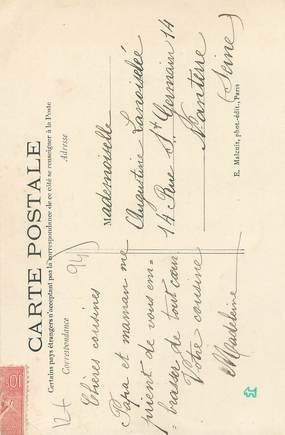 CARTE POSTALE
Certains pays étrangers n'acceptant pas la correspondance de ce côté se renseigner à la Poste
Correspondance
Adresse
94)
Chères cousines
Papa et maman me
prient de vous em-
brasser de tout cœur
Votre cousine
Madeleine
Mademoiselle
Augustine
14 Rue St Germain 14
Nanterre
(Seine)
E. Malcuit, phot.-édit., Paris
10